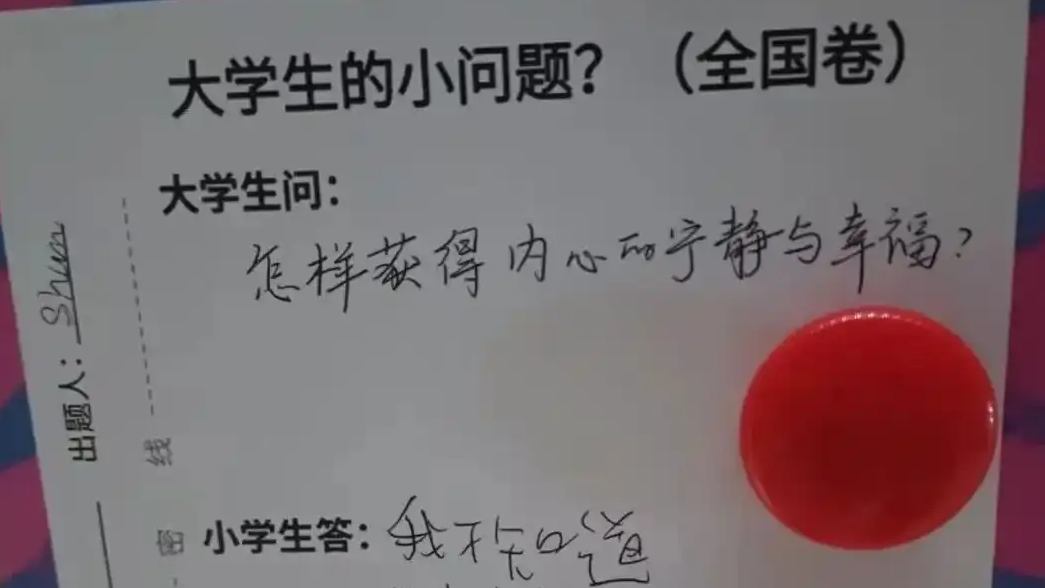 大学生的小问题？（全国卷）
大学生问：
怎样获得内心的宁静与幸福？
小学生答：我不知道
出题人：Shun
线
密